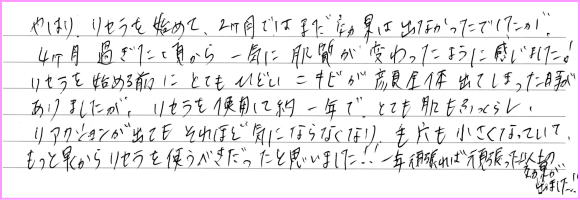 やはり、リセラを始めて、2ヶ月ではまだ効果は出なかったでしたが、
4ヶ月過ぎたころから一気に肌質が変わったように感じました!
リセラを始める前にとてもひどいニキビが顔全体出てしまった時が
ありましたが、リセラを使用して約一年で、とても肌もふっくらし、
リアクションが出てもそれほど気にならなくなり、毛穴も小さくなっていて、
もっと早くからリセラを使うべきだったと思いました!!一年頑張れば頑張った以上の
効果が
出ました!!